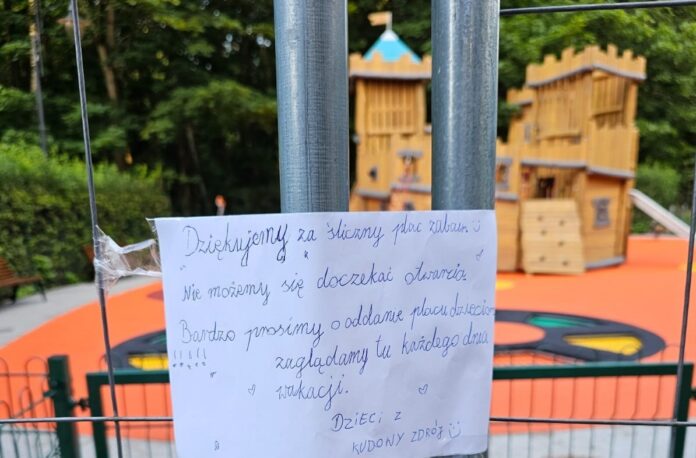 Dziękujemy za śliczny plac zabaw. :)
Nie możemy się doczekać otwarcia.
Bardzo prosimy o oddanie placu dzieciom
!!!!!! zaglądamy tu każdego dnia
wakacji.
DZIECI Z
KUDOWY ZDRÓJ :)